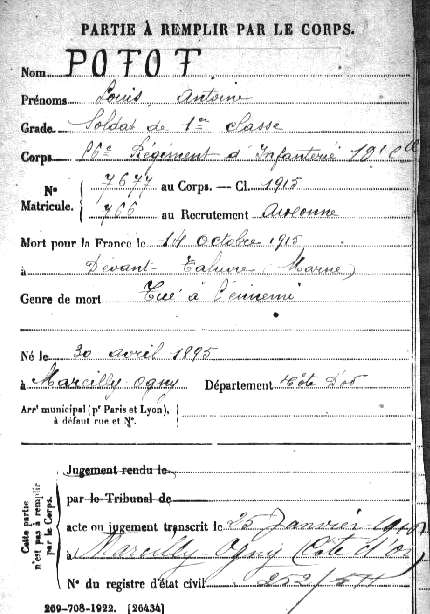 PARTIE À REMPLIR PAR LE CORPS.
Nom POTOT
Prénoms Louis Antoine
Grade Soldat de 1re classe
Corps 56e Régiment d'Infanterie 10e Cie
N° Matricule. 7677 au Corps. — Cl. 1915
766 au Recrutement Auxonne
Mort pour la France le 14 octobre 1915
à Devant Tahure (Marne)
Genre de mort Tué à l'ennemi
Né le 30 avril 1895
à Marcilly Ogny Département Côte d'Or
Arrt municipal (pr Paris et Lyon),
à défaut rue et N°.
Cette partie n'est pas à remplir par le Corps.
Jugement rendu le
par le Tribunal de
acte ou jugement transcrit le 25 Janvier
à Marcilly Ogny (Côte d'Or)
N° du registre d'état civil
269-708-1922. [26434]